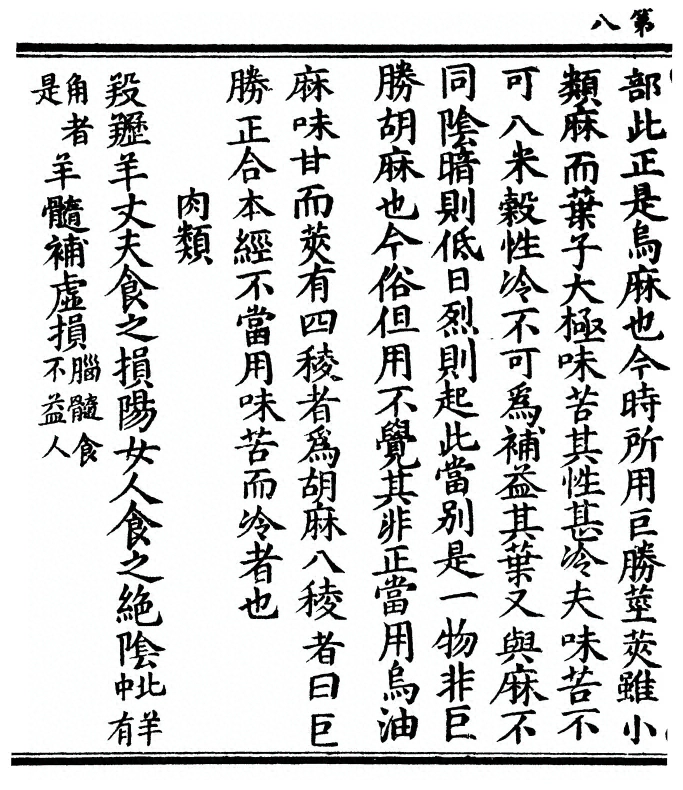 第八
部此正是烏麻也今時所用巨勝莖莢雖小
類麻而葉子大極味苦其性甚冷夫味苦不
可八米穀性冷不可爲補益其葉又與麻不
同陰暗則低日烈則起此當别是一物非巨
勝胡麻也今俗但用不覺其非正當用烏油
麻味甘而莢有四稜者爲胡麻八稜者曰巨
勝正合本經不當用味苦而冷者也
肉類
羖䍽羊丈夫食之損陽女人食之絶陰北羊中有
角者是羊髓補虛損腦髓食不益人